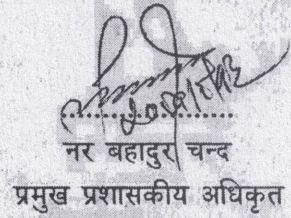 नर बहादुर चन्द
प्रमुख प्रशासकीय अधिकृत